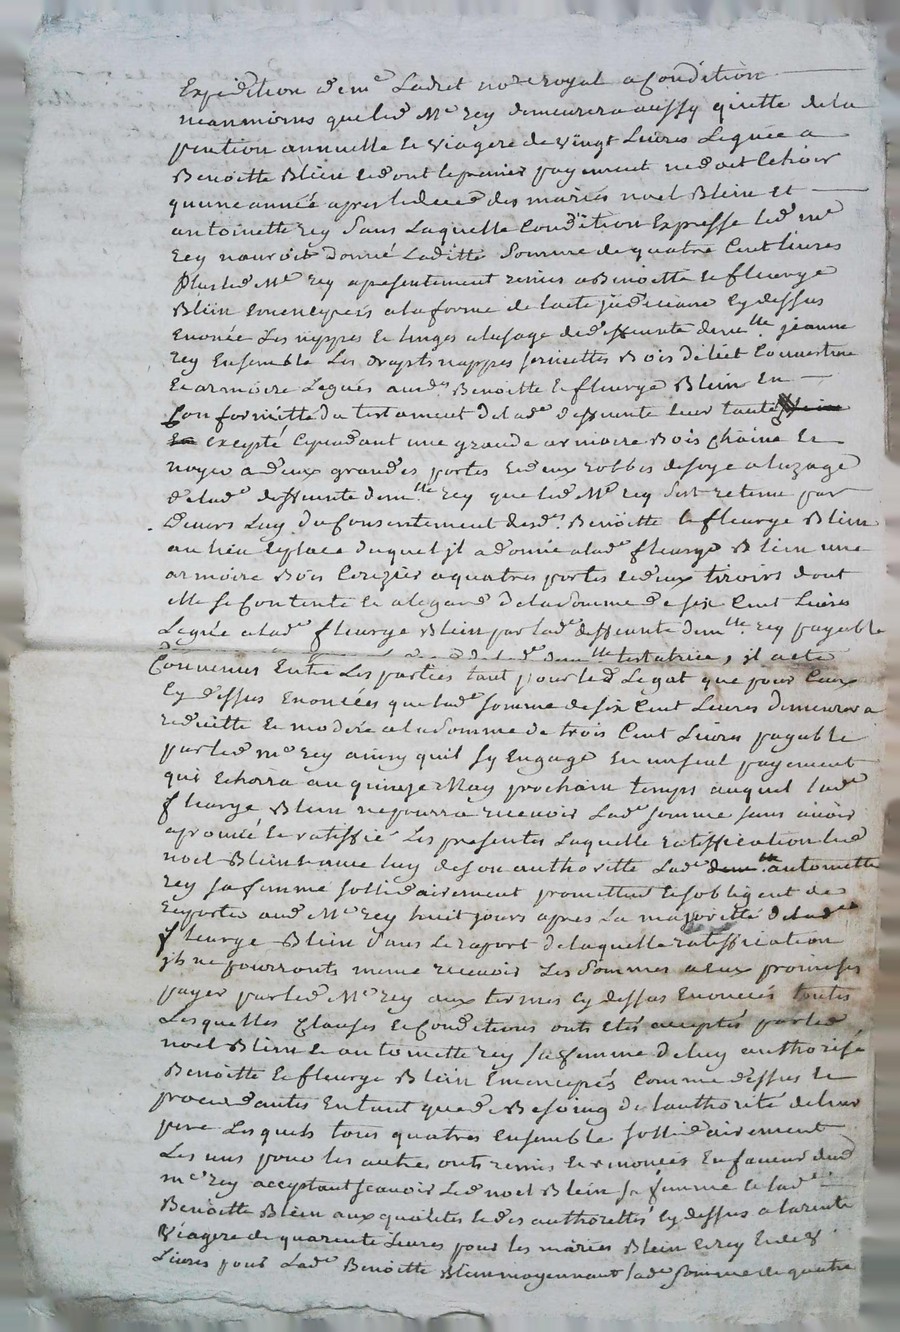 Expedition de me Ladret nore royal a Condition
neanmoins queled Me rey demeurera aussy quitte dela
pention annuelle et viagere de vingt Livres Leguée a
Benoitte Blein et dont le premier payement ne doit Echoir
quune année apres ledeced des mariés noel Blein et
antoinette rey Sans Laquelle Condition Expresse led me
rey nauroit donné Laditte Somme de quatre Cent livres
Plus led Me rey apresentement remis a Benoitte et fleurye
Blein Emencipés ala forme de lacte judiciaire cy dessus
Enonée Les nippes et linges alusage de deffuinte demlle jeanne
rey Ensemble Les drapts nappes serviettes Bois delict Couverture
et armoire Legués auxds Benoitte et fleurye Blein En
Conformitté du testament delade deffuinte leur tante
Excepté Cependant une grande armoire Bois chaine et
noyer a deux grandes portes et deux robbes desoye aluzage
delade deffuinte demlle rey que led Me rey Sest retenu par
Devers Luy du Consentement desds Benoitte et fleurye Blein
au lieu et place duquel jl a donné alade fleurye Blein une
armoire Bois Cerizier a quatres portes et deux tiroirs dont
elle se Contente et alegard delasomme de six Cent Livres
Leguée alade fleurye Blein par lade deffuinte demlle rey payable
delade demlle testatrice, jl a eté
Convenus Entre Les parties tant pour led Legat que pour Ceux
Cy dessus Enoncées que lade somme de six Cent Livres demeurera
reduitte et modérée a lasomme de trois Cent Livres payable
par led me rey ainsy quil sy Engage En un seul payement
qui Echorra au quinze May prochain temps auquel lade
fleurye Blein ne pourra recevoir Lade somme sans avoir
aprouvé et ratiffié Les presentes Laquelle ratiffication led
noel Blein avec luy de son authoritté Lade antoinette
rey sa femme sollidairement promettent et sobligent de
raporter aud Me rey huit jours apres La majoritté delade
fleurye Blein Sans Le raport de laquelle ratiffication
jls ne pourronts meme recevoir Les Sommes a Eux promises
payer par led Me rey aux termes cy dessus Enoncés toutes
Lesquelles Clauses et Conditions onts etés acceptés par led
noel Blein et antoinette rey sa femme deluy authorisé
Benoitte et fleurye Blein Emencipés Comme dessus et
procedantes En tant que de Besoing de lauthorité de leur
pere Lesquels tous quatres Ensemble sollidairement
Les uns pour les autres onts remis et renoncés En faveur dud
me rey acceptant scavoir Led noel Blein sa femme et lade
Benoitte Blein aux qualités et des authorittés cy dessus a larente
Viagere de quarente Livres pour les mariés Blein et rey
Livres pour Lade Benoitte Blein moyennant lade somme de quatre